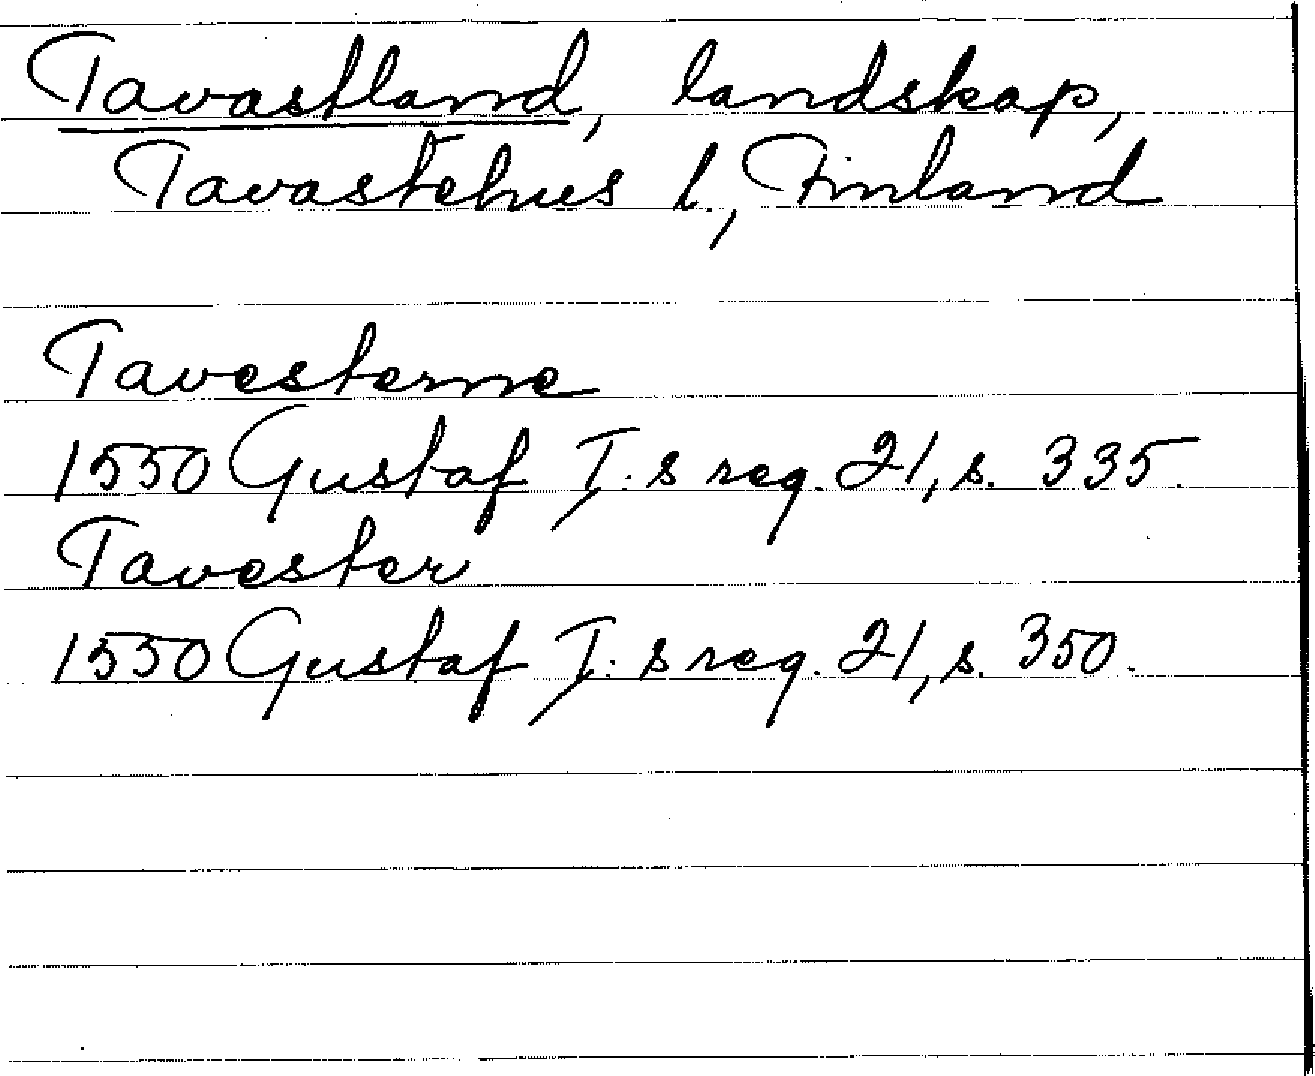 Tavastland, landskap,
Tavastehus l., Finland
Tavesterne
1550 Gustaf I:s reg. 21, s. 335.
Tavester
1550 Gustaf I:s reg. 21, s. 350.